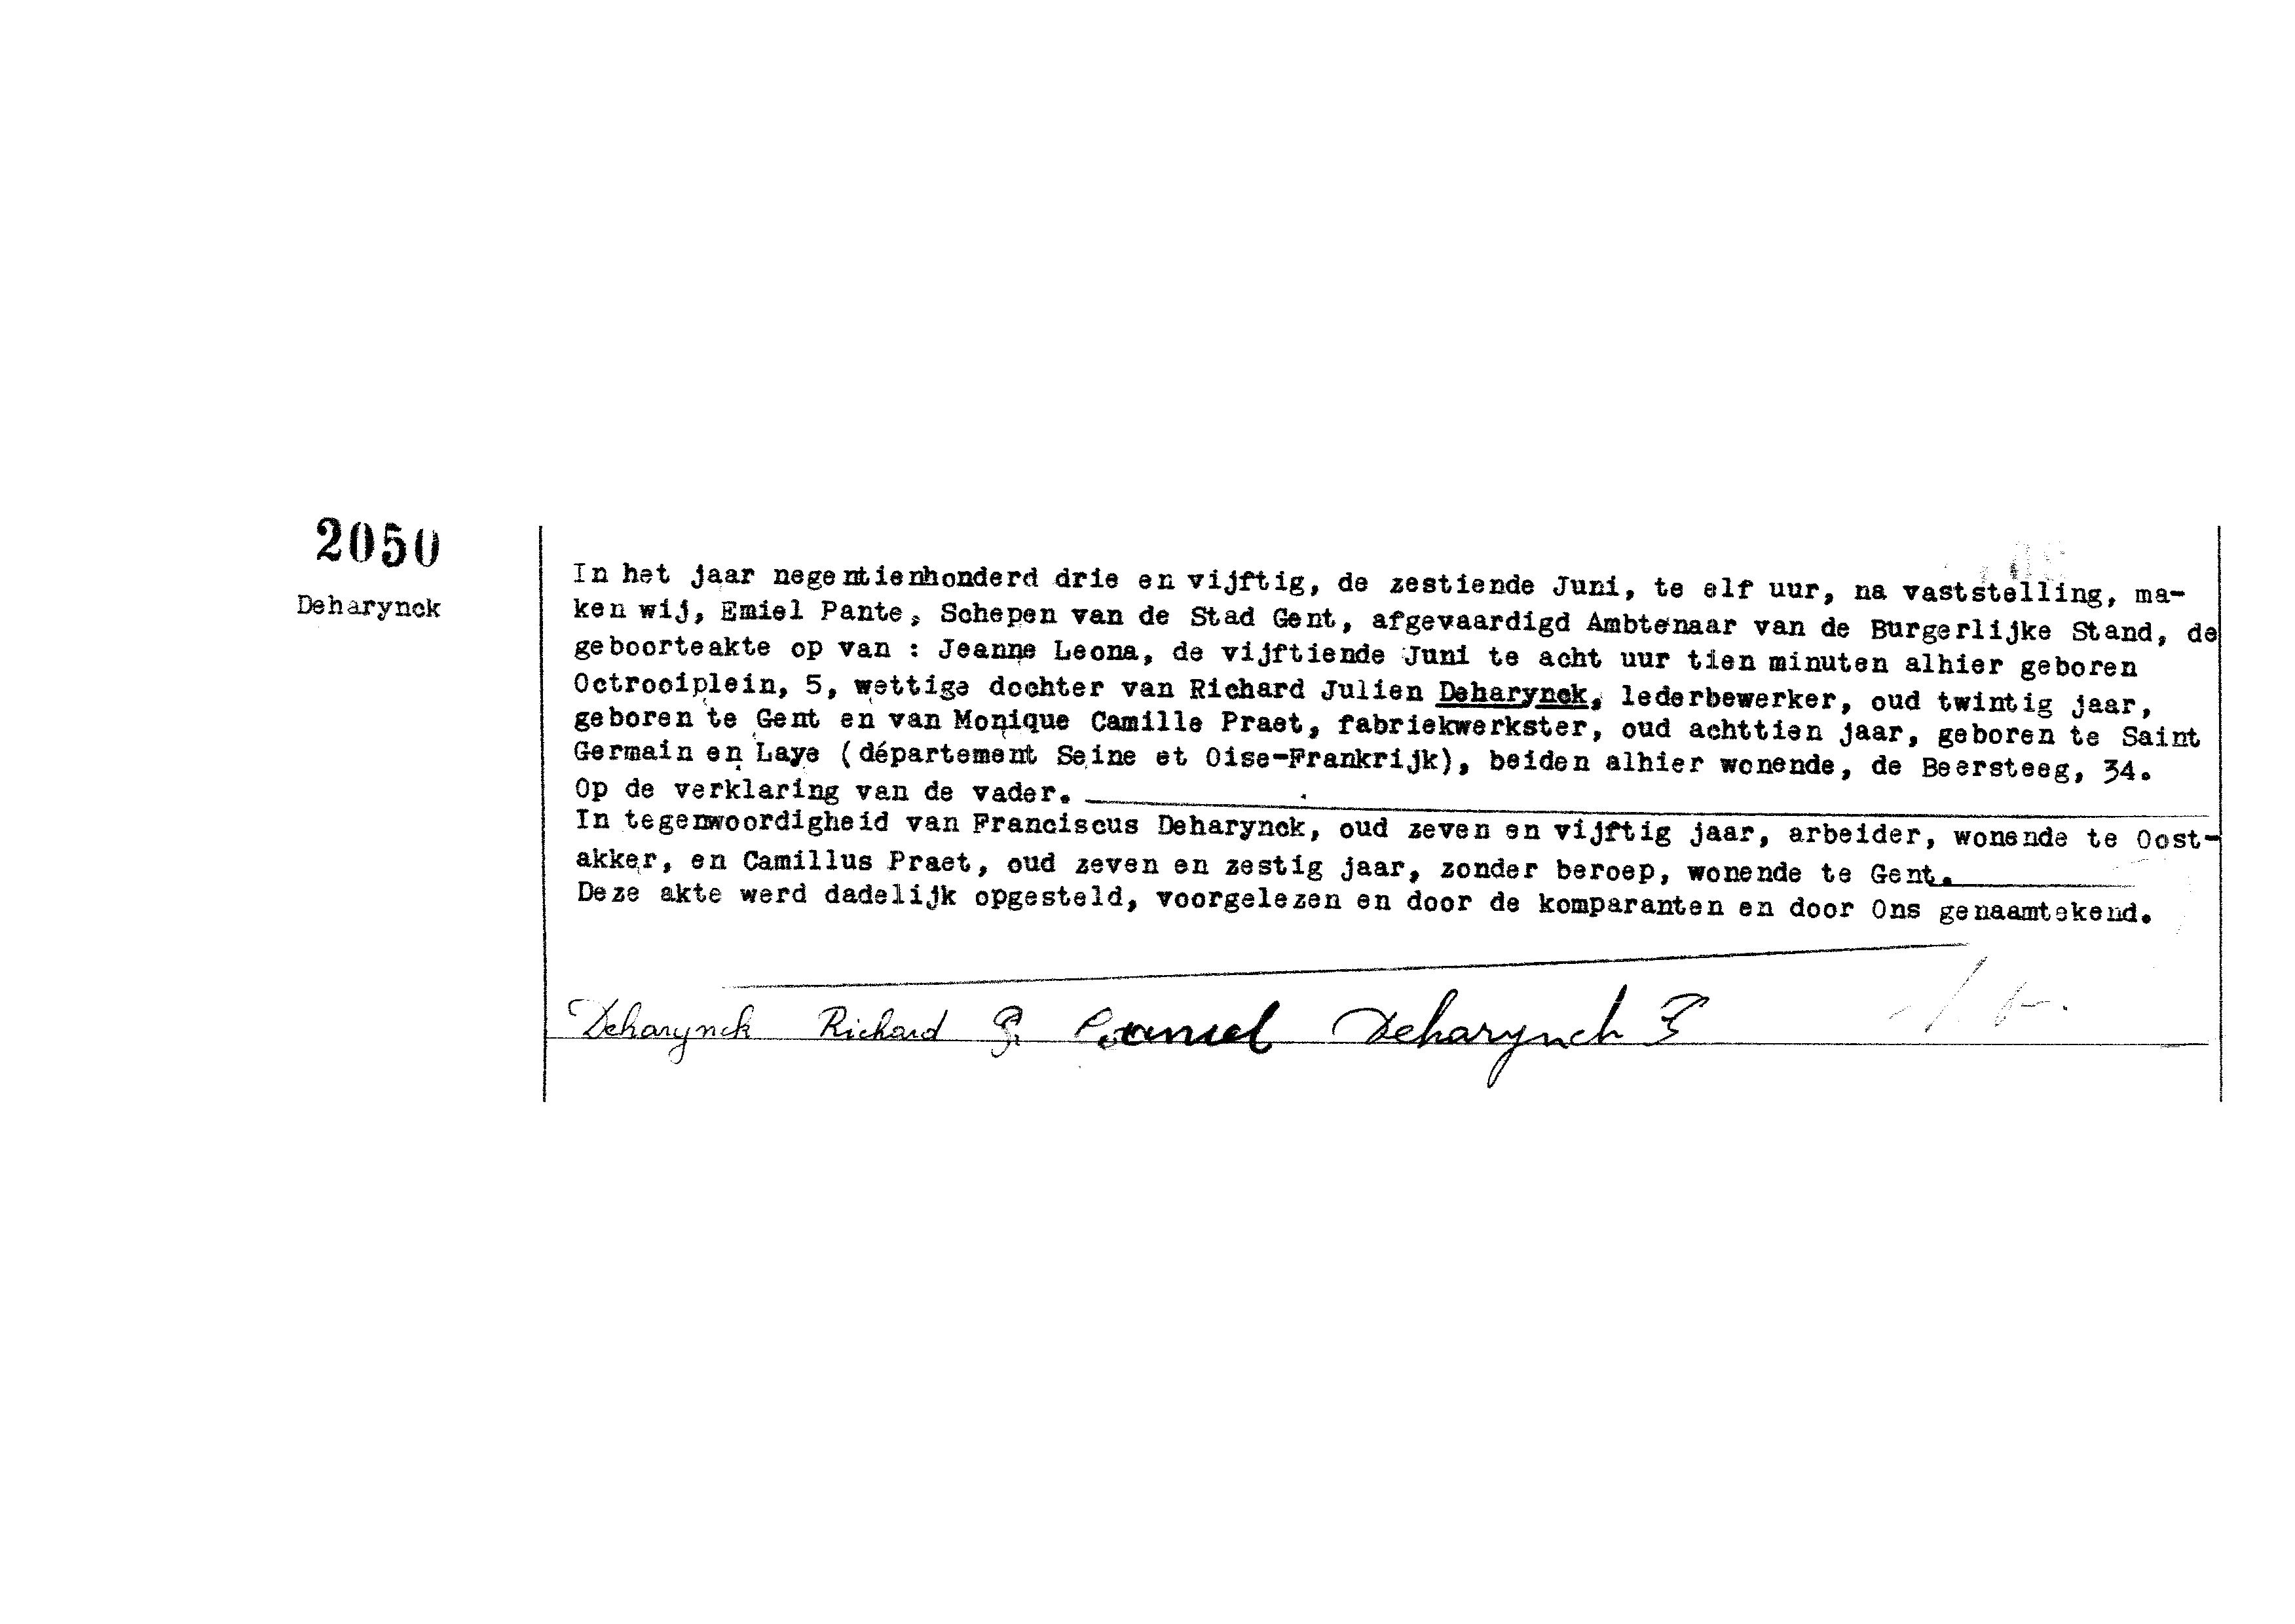 2050
Deharynck
In het jaar negentienhonderd drie en vijftig, de zestiende Juni, te elf uur, na vaststelling, ma-
ken wij, Emiel Pante, Schepen van de Stad Gent, afgevaardigd Ambtenaar van de Burgerlijke Stand, de
geboorteakte op van : Jeanne Leona, de vijftiende Juni te acht uur tien minuten alhier geboren
Octrooiplein, 5, wettige dochter van Richard Julien Deharynck, lederbewerker, oud twintig jaar,
geboren te Gent en van Monique Camille Praet, fabriekwerkster, oud achttien jaar, geboren te Saint
Germain en Laye (département Seine et Oise-Frankrijk), beiden alhier wonende, de Beersteeg, 34.
Op de verklaring van de vader.
In tegenwoordigheid van Franciscus Deharynck, oud zeven en vijftig jaar, arbeider, wonende te Oost-
akker, en Camillus Praet, oud zeven en zestig jaar, zonder beroep, wonende te Gent.
Deze akte werd dadelijk opgesteld, voorgelezen en door de komparanten en door Ons genaamtekend.
Deharynck Richard Deharynck F